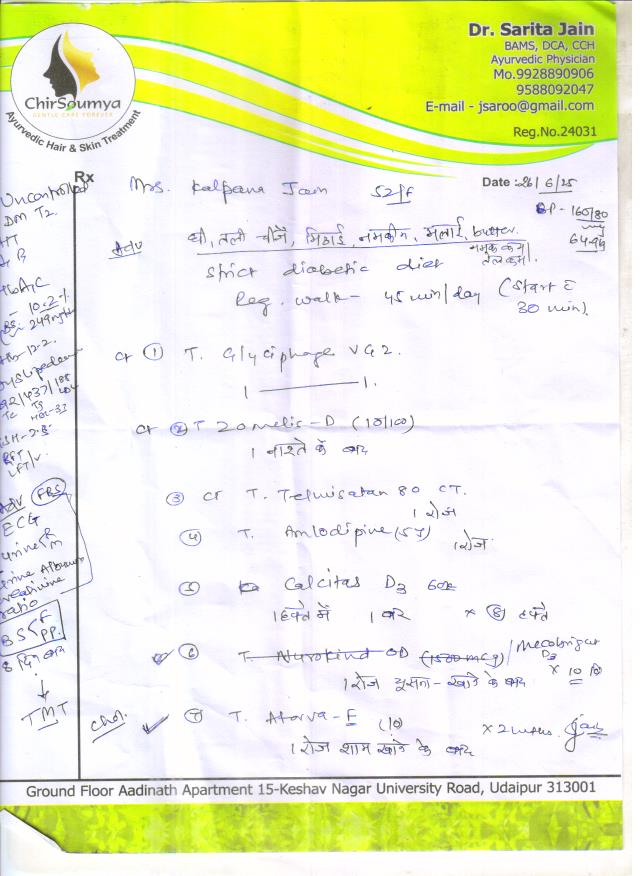 Dr. Sarita Jain
BAMS, DCA, CCH
Ayurvedic Physician
Mo.9928890906
9588092047
E-mail - jsaroo@gmail.com
Reg.No.24031
ChirSoumya
GENTLE CARE FOREVER
Ayurvedic Hair & Skin Treatment
Rx
Mrs. Kalpana Jain 52/F
Date :26/6/25
BP - 160/80
Adv घी, तली चीजें, मिठाई, नमकीन, मलाई, butter.
नमक कम
तेल कम
strict diabetic diet
Reg. walk - 45 min/day (start
30 min)
Uncontrolled
DM T2
HT
HbA1C
10.2%
249
Hb-12.2
ct ① T. Glyciphage VG2.
1 1.
ct ② T Zomelis-D (10/100)
1 नाश्ते के बाद
③ ct T. Telmisatan 80 CT.
1 रोज
④ T. Amlodipine (5)
1 रोज
⑤ Calcitas D3 60k
1 हफ्ते में 1 बार × ⑧ हफ्ते
⑥ T. Nurokind OD (1500mcg) /
D3
1 रोज सुबह - खाने के बाद × 10 दि
⑦ T. Atorva-E (10 × 2
1 रोज शाम खाने के बाद
Adv FBS
ECG
urine R
m
urine Albumin
creatinine
ratio
BS F
PP.
8 दिन बाद
TMT
Chol.
Ground Floor Aadinath Apartment 15-Keshav Nagar University Road, Udaipur 313001